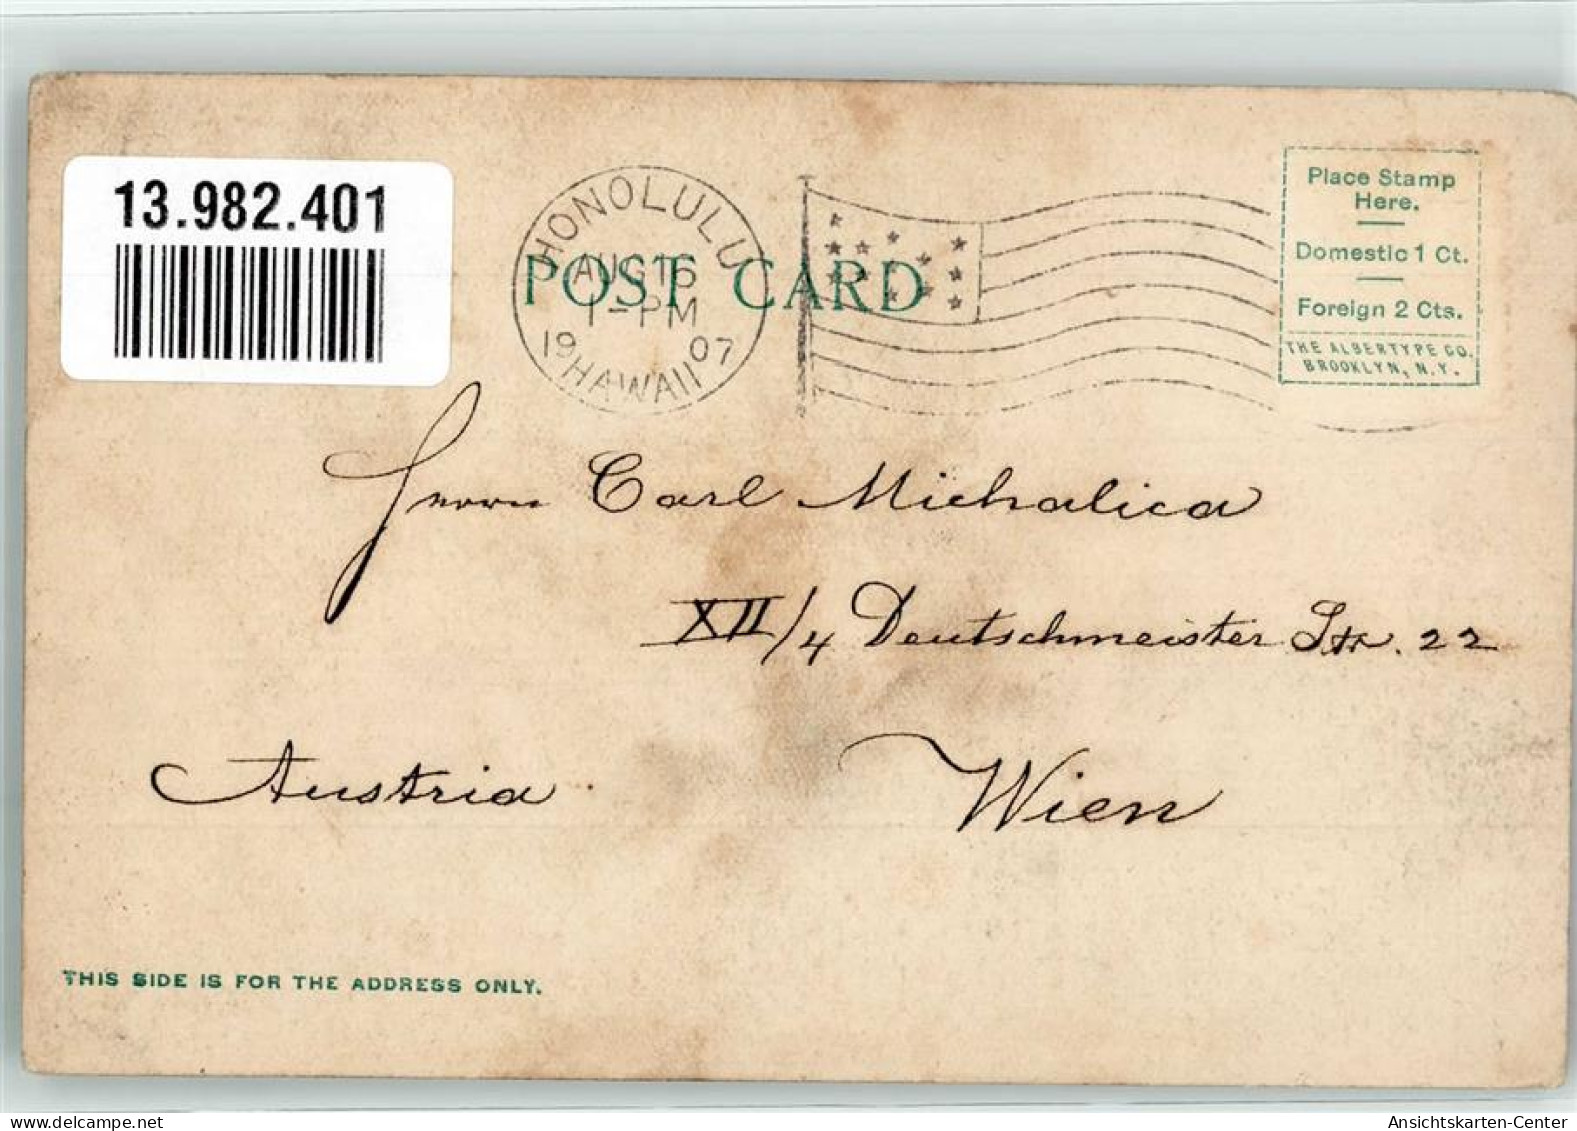 13.982.401
HONOLULU
AUG 16
1-PM
1907
HAWAII
POST CARD
Place Stamp
Here.
Domestic 1 Ct.
Foreign 2 Cts.
THE ALBERTYPE CO.
BROOKLYN, N.Y.
Herrn Carl Michalica
XII/4 Deutschmeister Str. 22
Austria Wien
THIS SIDE IS FOR THE ADDRESS ONLY.
www.delcampe.net
Ansichtskarten-Center